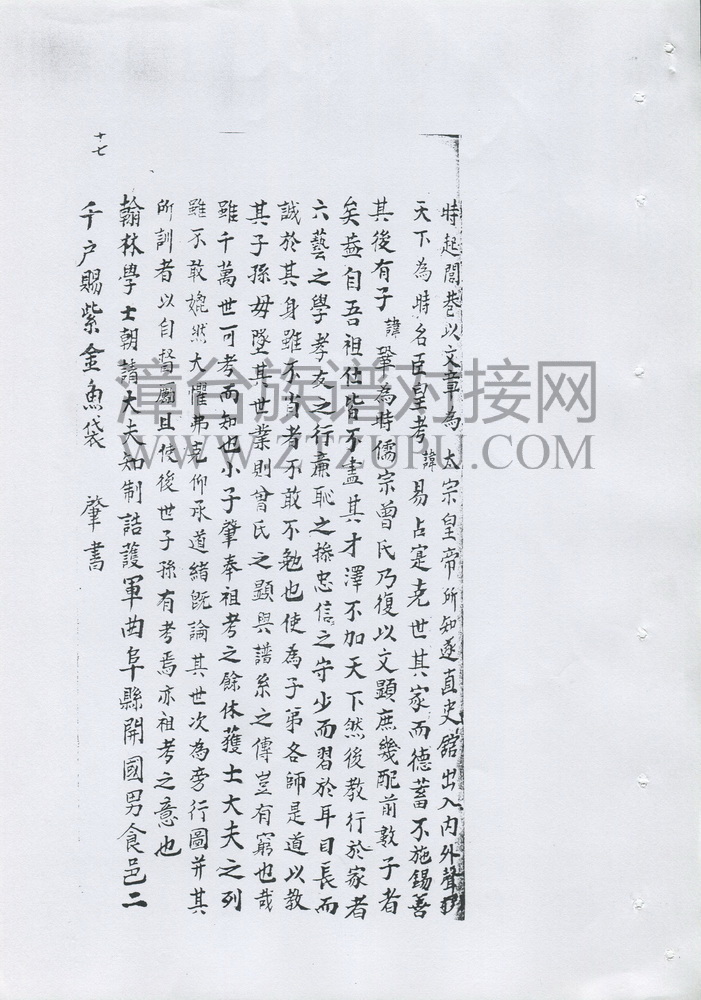 時起閭巷以文章為太宗皇帝所知遂直史舘出入内外聲
天下為時名臣皇考諱易占寔克世其家而德蓄不施錫善
其後有子諱鞏為時儒宗曾氏乃復以文顯庶幾配前數子者
矣葢自吾祖仕皆不盡其才澤不加天下然後教行於家者
六藝之學孝友之行亷恥之操忠信之守少而習於耳目長而
誠於其身雖不肖者不敢不勉也使為子第各師是道以教
其子孫毋墜其世業則曾氏之顯與譜系之傳豈有窮也哉
雖千萬世可考而知也小子肇奉祖考之餘休獲士大夫之列
雖不敢 然大懼弗克仰承道緒旣論其世次為旁行圖并其
所訓者以自督厲且使後世子孫有考焉亦祖考之意也
翰林學士朝請大夫知制誥護軍曲阜縣開國男食邑二
千户賜紫金魚袋 肇書
十七
漳台族谱对接网
WWW.ZTZUPU.COM